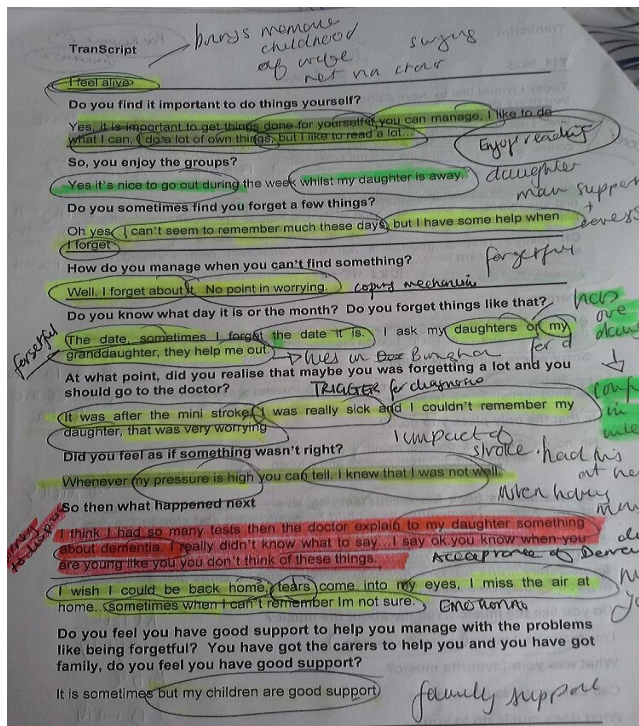 TranScript
brings memories
childhood
I feel alive
Do you find it important to do things yourself?
Yes, it is important to get things done for yourself if you can manage. I like to do
what I can. I do a lot of own things, but I like to read a lot...
Enjoy reading
So, you enjoy the groups?
Yes it's nice to go out during the week whilst my daughter is away.
daughter
main support
Do you sometimes find you forget a few things?
Oh yes, I can't seem to remember much these days, but I have some help when
I forget
forgetful
How do you manage when you can't find something?
Well, I forget about it. No point in worrying.
coping mechanism
Do you know what day it is or the month? Do you forget things like that?
The date, sometimes I forget the date it is. I ask my daughters or my
granddaughter, they help me out.
forgetful
lives in
At what point, did you realise that maybe you was forgetting a lot and you
should go to the doctor?
TRIGGER for diagnosis
It was after the mini stroke. I was really sick and I couldn't remember my
daughter, that was very worrying
Impact of
stroke
Did you feel as if something wasn't right?
Whenever my pressure is high you can tell. I knew that I was not well.
when having
So then what happened next
I think I had so many tests then the doctor explain to my daughter something
about dementia. I really didn't know what to say. I say ok you know when you
are young like you you don't think of these things.
Acceptance of
I wish I could be back home, tears come into my eyes, I miss the air at
home.. sometimes when I can't remember Im not sure.
Emotional
Do you feel you have good support to help you manage with the problems
like being forgetful? You have got the carers to help you and you have got
family, do you feel you have good support?
It is sometimes but my children are good support
family support